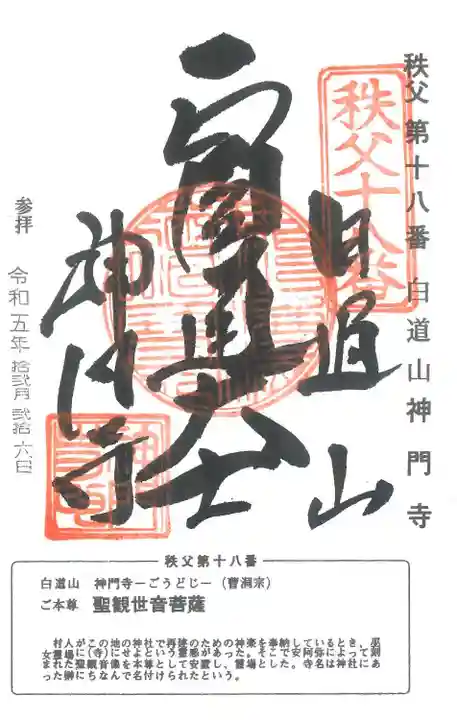 秩父第十八番 白道山神門寺
秩父十八番
白道山
神門寺
参拝 令和五年拾弐月弐拾六日
秩父第十八番
白道山 神門寺ーごうどじー (曹洞宗)
ご本尊 聖観世音菩薩
村人がこの地の神社で再建のための神楽を奉納しているとき、巫
女霊場に(寺)にせよという霊感があった。そこで安阿弥によって刻
まれた聖観音像を本尊として安置し、霊場とした。寺名は神社にあ
った榊にちなんで名付けられたという。